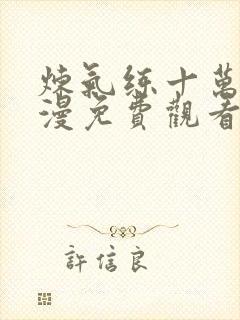 煉氣練十萬
漫免費觀看
許信良